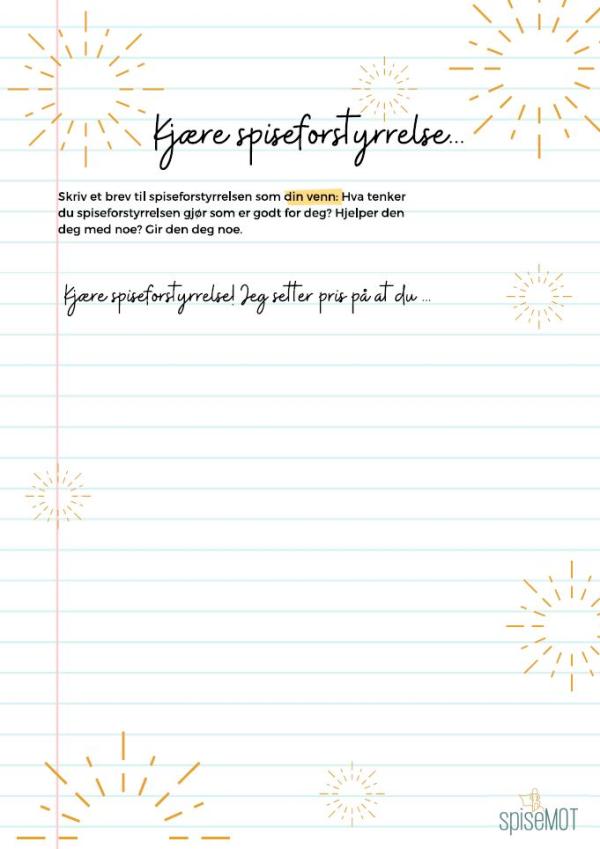 Kjære spiseforstyrrelse...
Skriv et brev til spiseforstyrrelsen som din venn: Hva tenker
du spiseforstyrrelsen gjør som er godt for deg? Hjelper den
deg med noe? Gir den deg noe.
Kjære spiseforstyrrelse! Jeg setter pris på at du ...
spiseMOT